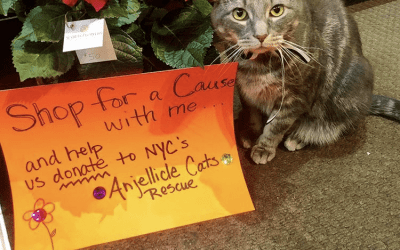 Shop for a Cause
with me...
and help
us donate to NYC's
Anjellicle Cats
Rescue